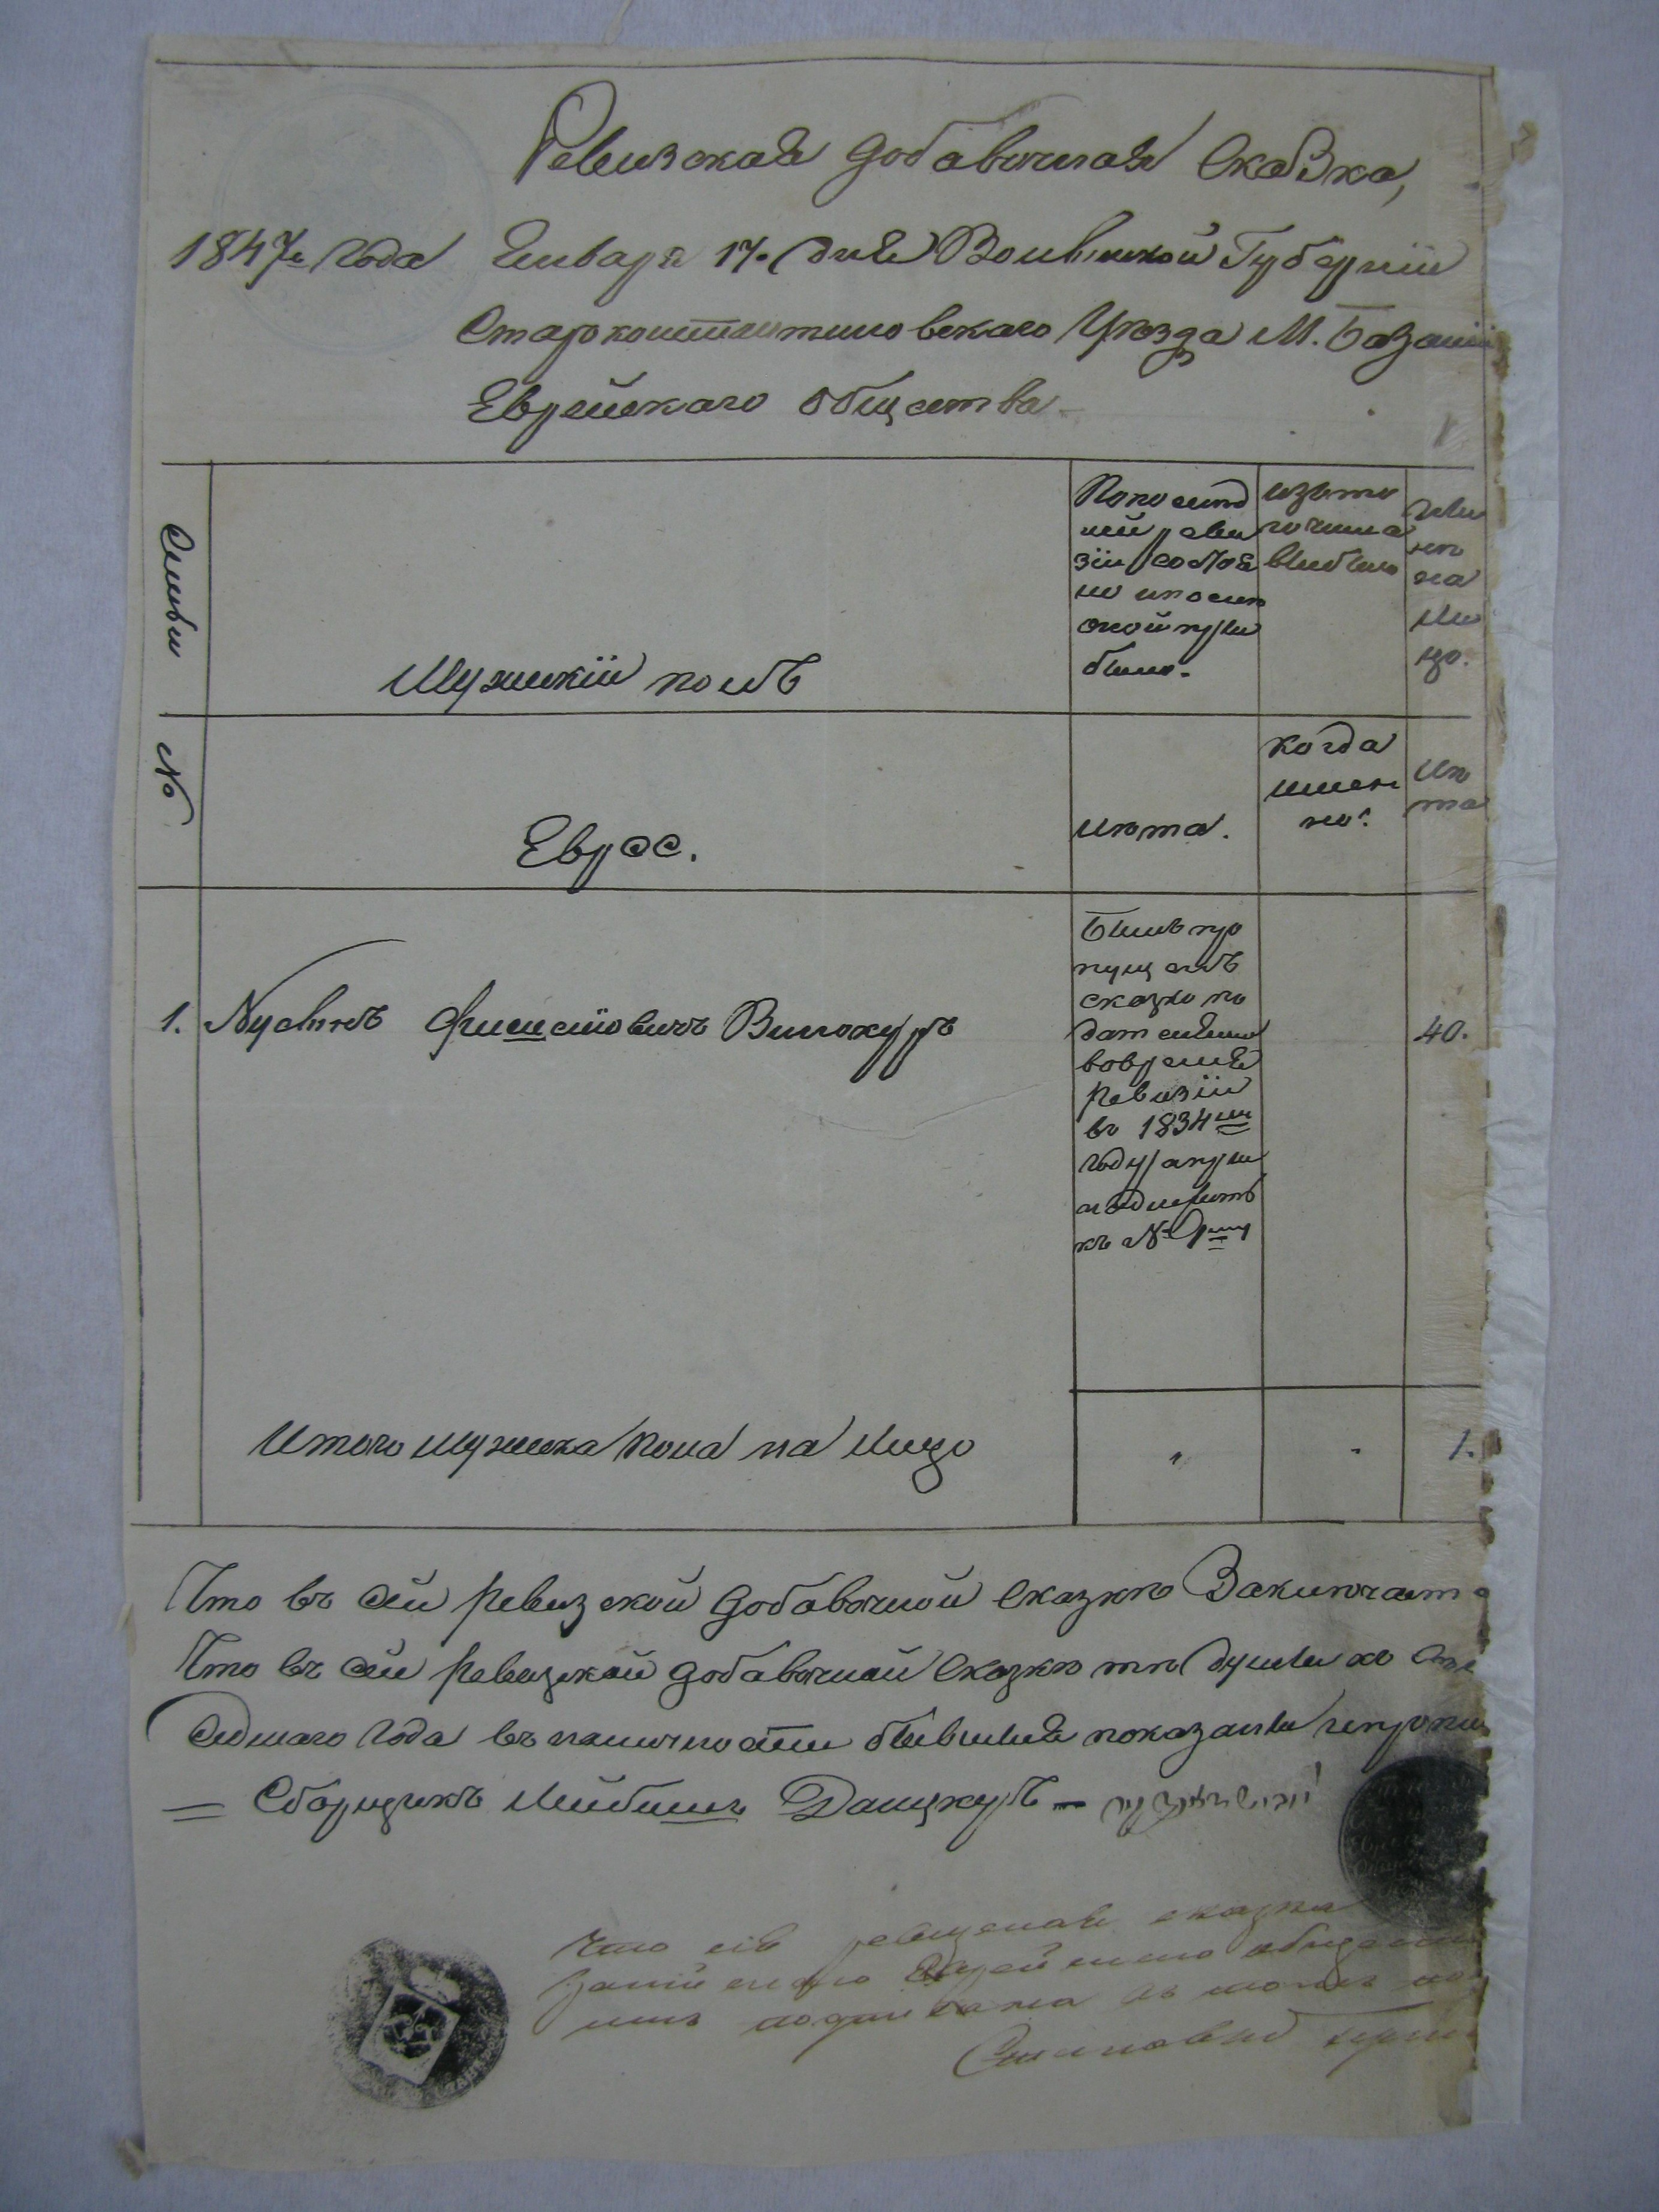 Ревизская добавочная Сказка,
1847 года Января 17. дня Волынской Губерніи
Староконстантиновскаго Уѣзда М. Базаліи
Еврейскаго общества
Семьи
Мужескій полъ
По послѣд
ней реви
зіи состоя
ло и послѣ
оной при
было.
изъ то
го числа
выбыло
нынѣ
на
ли
цо.
№
Евреи.
лѣта.
когда
имен
но.
лѣ
та
1. Нусынъ Винокуръ
Былъ про
пущенъ
сказко по
дателемъ
вовремя
Ревизіи
въ 1834мъ
году, а при
надлежитъ
къ №
40.
Итого мужеска пола на лицо
1.
Что въ сей ревизской добавочной Сказкѣ Заключает
Что въ сей ревизской добавочной Сказкѣ тѣ души
седмаго года въ наличности бывшія показаны
Сборщикъ Лейбишъ Данцкеръ
Что сія ревизская сказка
Еврейскаго общества
подписана въ томъ